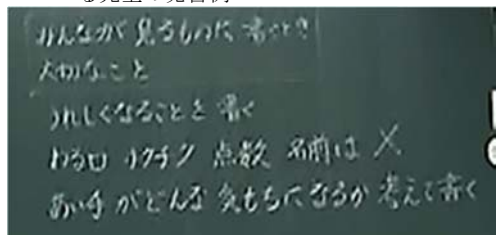 る児童の発言例
みんなが見るものに書くとき
大切なこと
うれしくなることを書く
わる口 点数 名前は ×
あい手がどんな気もちになるか考えて書く